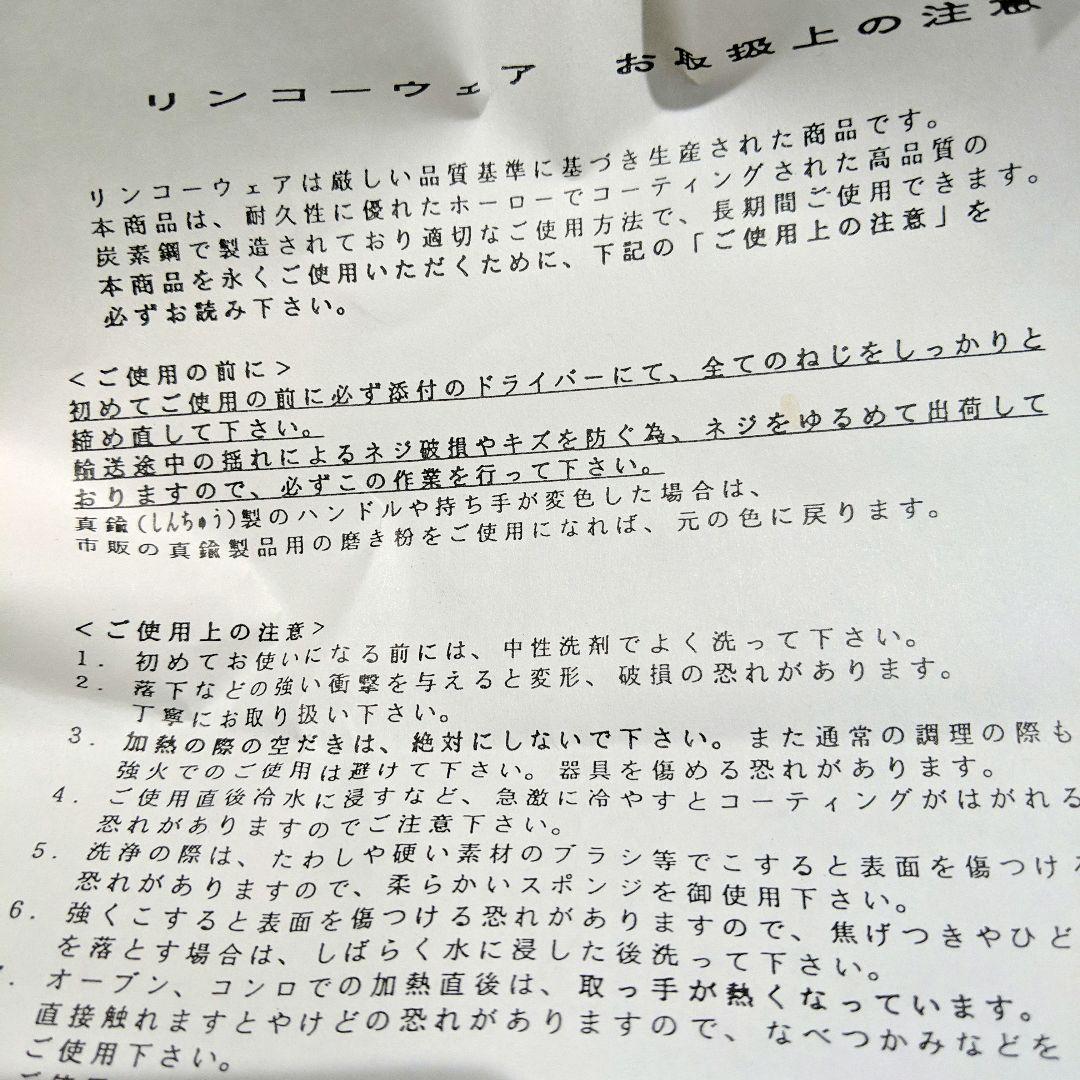 リンコーウェア お取扱上の注意
リンコーウェアは厳しい品質基準に基づき生産された商品です。
本商品は、耐久性に優れたホーローでコーティングされた高品質の
炭素鋼で製造されており適切なご使用方法で、長期間ご使用できます。
本商品を永くご使用いただくために、下記の「ご使用上の注意」を
必ずお読み下さい。
<ご使用の前に>
初めてご使用の前に必ず添付のドライバーにて、全てのねじをしっかりと
締め直して下さい。
輸送途中の揺れによるネジ破損やキズを防ぐ為、ネジをゆるめて出荷して
おりますので、必ずこの作業を行って下さい。
真鍮(しんちゅう)製のハンドルや持ち手が変色した場合は、
市販の真鍮製品用の磨き粉をご使用になれば、元の色に戻ります。
<ご使用上の注意>
1. 初めてお使いになる前には、中性洗剤でよく洗って下さい。
2. 落下などの強い衝撃を与えると変形、破損の恐れがあります。
丁寧にお取り扱い下さい。
3. 加熱の際の空だきは、絶対にしないで下さい。また通常の調理の際も
強火でのご使用は避けて下さい。器具を傷める恐れがあります。
4. ご使用直後冷水に浸すなど、急激に冷やすとコーティングがはがれる
恐れがありますのでご注意下さい。
5. 洗浄の際は、たわしや硬い素材のブラシ等でこすると表面を傷つける
恐れがありますので、柔らかいスポンジを御使用下さい。
6. 強くこすると表面を傷つける恐れがありますので、焦げつきやひど
を落とす場合は、しばらく水に浸した後洗って下さい。
. オーブン、コンロでの加熱直後は、取っ手が熱くなっています。
直接触れますとやけどの恐れがありますので、なべつかみなどを
ご使用下さい。